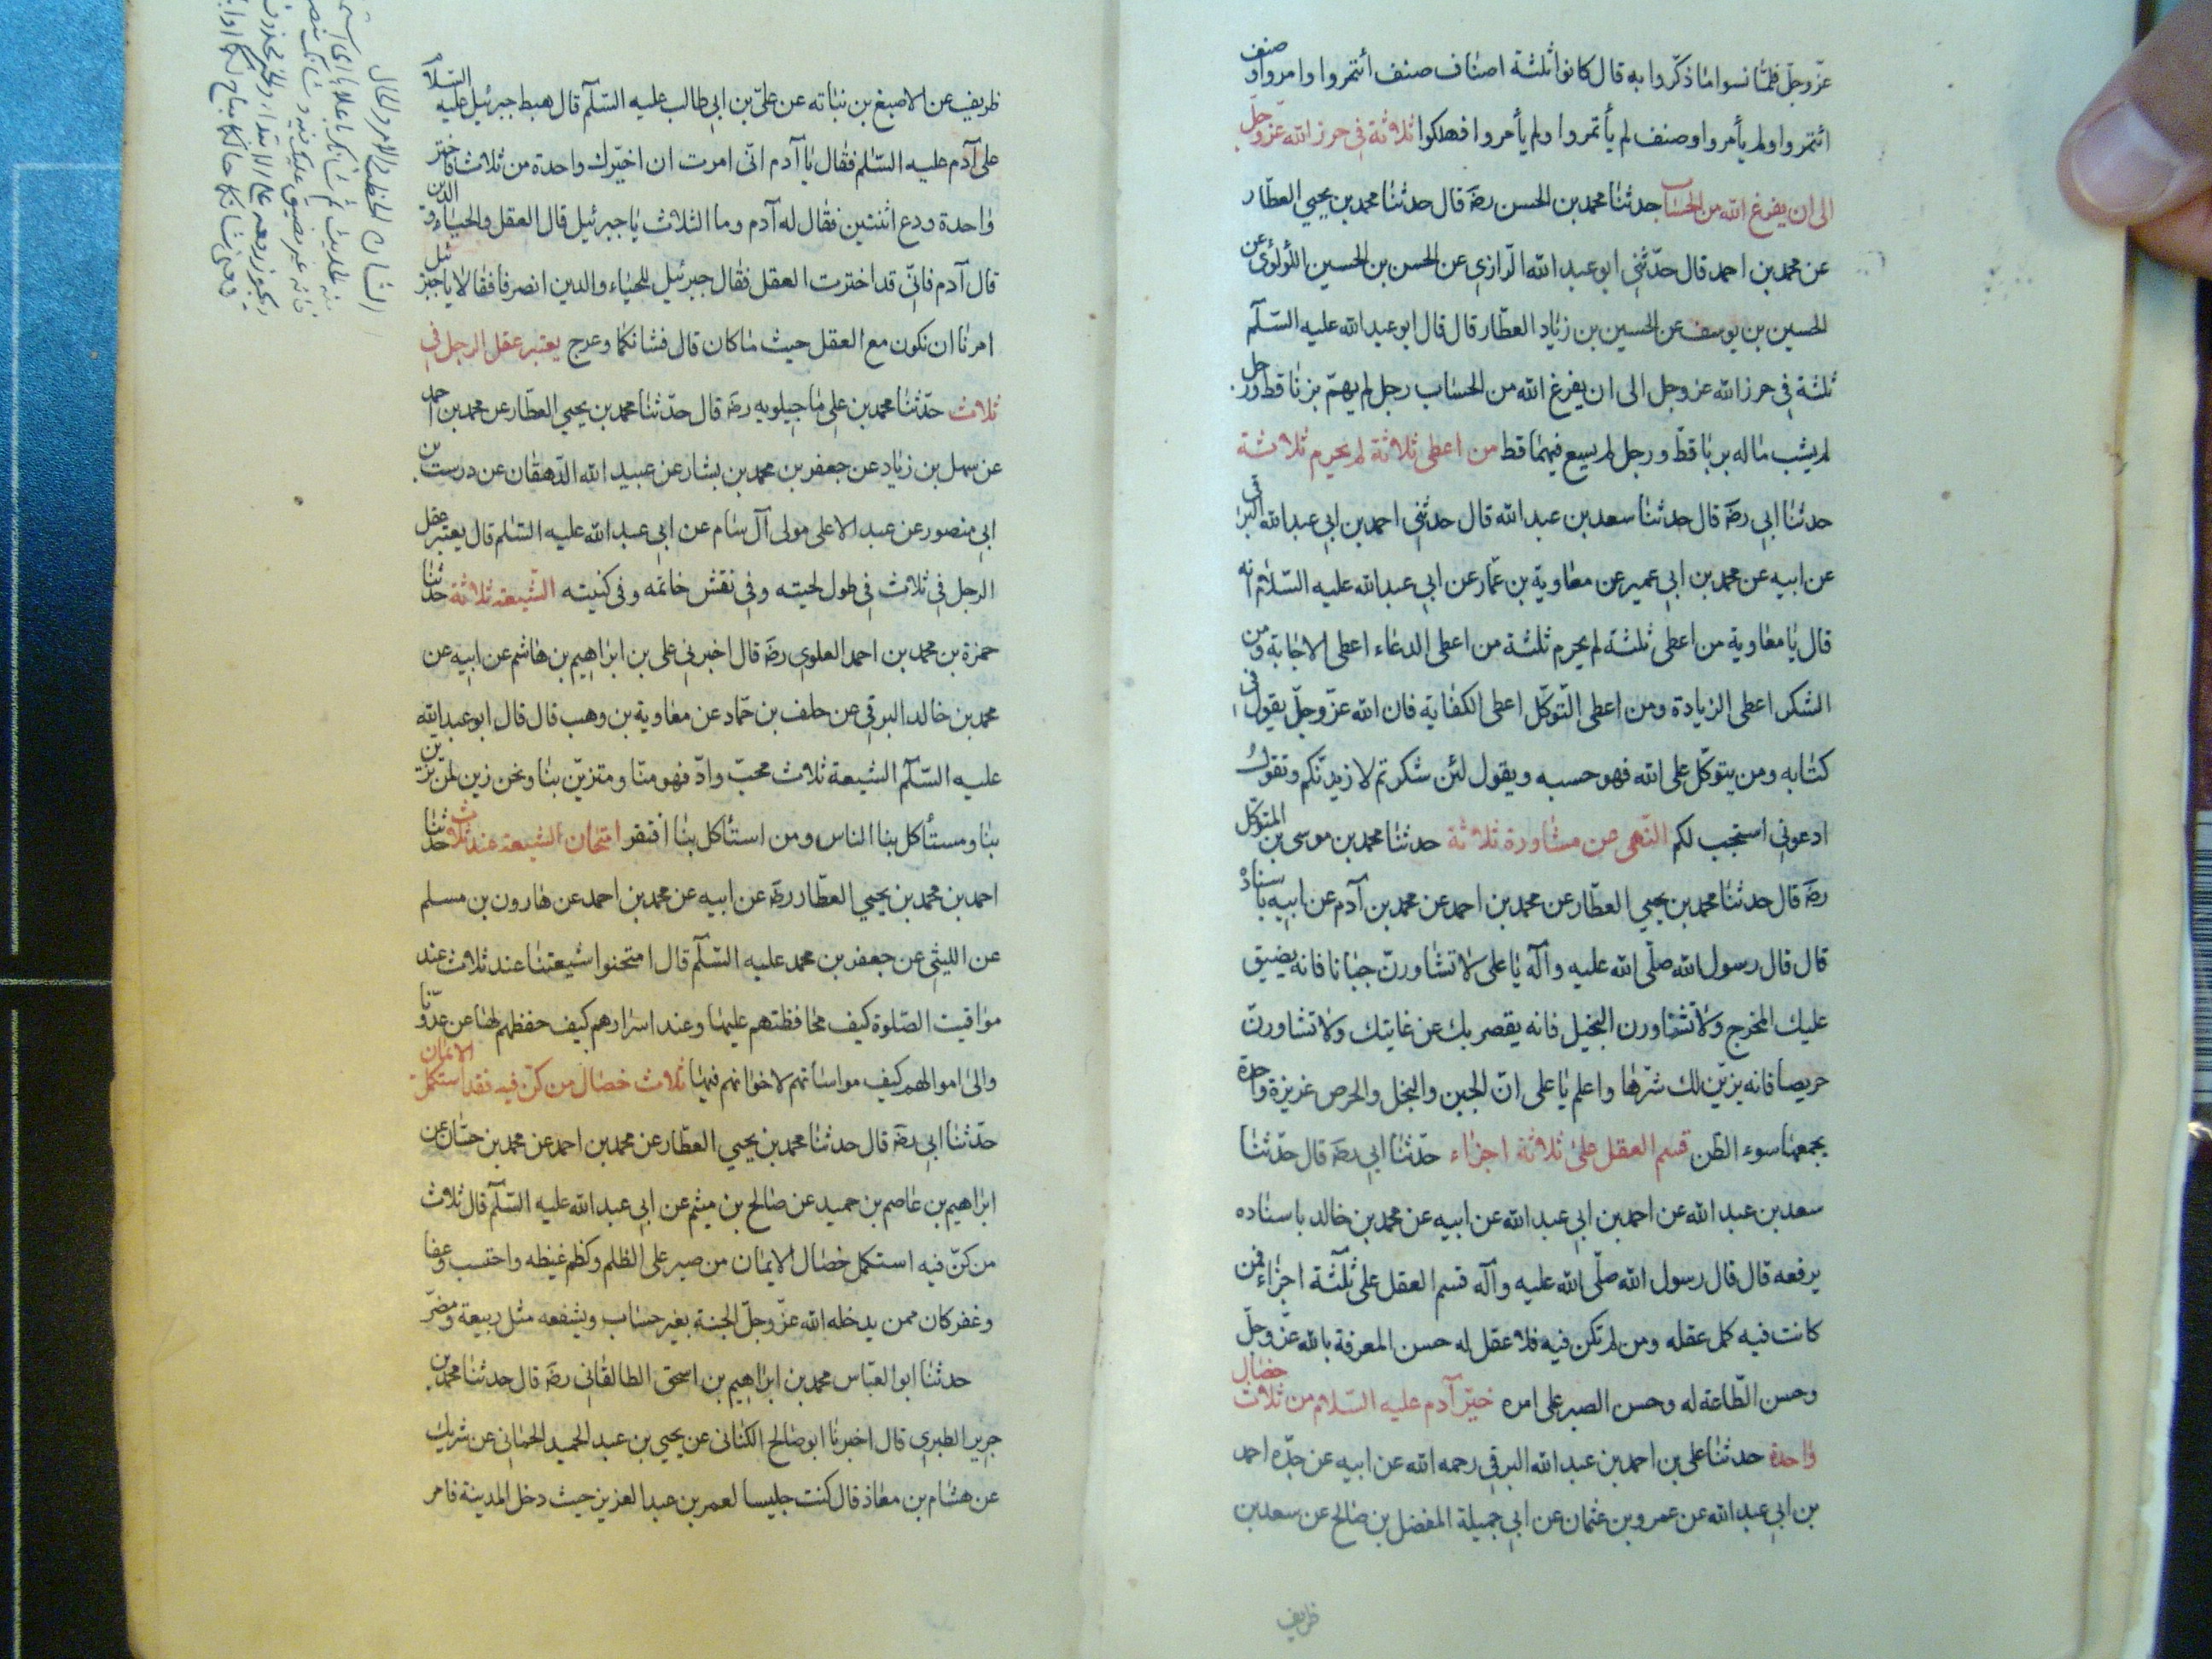 عزّ وجلّ فلمّا نسوا ما ذكّروا به قال كانوا ثلثة اصناف صنف أئتمروا وامروا وصنف
ائتمروا ولم يأمروا وصنف لم يأتمروا ولم يأمروا فهلكوا ثلاثة في حرز الله عزّ وجلّ
الى ان يفرغ الله من الحساب حدثنا محمد بن الحسن رضه قال حدثنا محمد بن يحيي العطّار
عن محمد بن احمد قال حدّثني ابو عبد الله الرّازي عن الحسن بن الحسين اللؤلؤي عن
الحسين بن يوسف عن الحسين بن زياد العطّار قال قال ابو عبد الله عليه السّلم
ثلثة في حرز الله عز وجل الى ان يفرغ الله من الحساب رجل لم يهمّ بزنا قط ورجل
لم يشب ماله بربا قطّ ورجل لم يسع فيهما قط من اعطى ثلاثة لم يحرم ثلاثة
حدثنا ابي رضه قال حدثنا سعد بن عبد الله قال حدثني احمد بن ابي عبد الله البرقي
عن ابيه عن محمد بن ابي عمير عن معاوية بن عمّار عن ابي عبد الله عليه السّلام انه
قال يا معاوية من اعطى ثلثة لم يحرم ثلثة من اعطى الدعاء اعطى الاجابة ومن
الشكر اعطى الزيادة ومن اعطى التّوكّل اعطى الكفاية فان الله عزّ وجلّ يقول في
كتابه ومن يتوكّل على الله فهو حسبه ويقول لئن شكرتم لازيدنّكم وتقول
ادعوني استجب لكم النّهى عن مشاورة ثلاثة حدثنا محمد بن موسى بن المتوكّل
رضه قال حدثنا محمد بن يحيي العطّار عن محمد بن احمد عن محمد بن آدم عن ابيه باسناده
قال قال رسول الله صلّى الله عليه وآله يا على لا تشاورنّ جبانا فانه يضيق
عليك المخرج ولا تشاورن البخيل فانه يقصر بك عن غايتك ولا تشاورنّ
حريصا فانه يزيّن لك شرّها واعلم يا على انّ الجبن والبخل والحرص غريزة واحدة
يجمعها سوء الظن قسم العقل على ثلاثة اجزاء حدّثنا ابي رضه قال حدّثنا
سعد بن عبد الله عن احمد بن ابي عبد الله عن ابيه عن محمد بن خالد باسناده
يرفعه قال قال رسول الله صلّى الله عليه وآله قسم العقل على ثلثة اجزاء فمن
كانت فيه كمل عقله ومن لم تكن فيه فلا عقل له حسن المعرفة بالله عزّ وجلّ
وحسن الطّاعة له وحسن الصبر على امره خيّر آدم عليه السّلام من ثلاث خصال
واحدة حدثنا على بن احمد بن عبد الله البرقي رحمه الله عن ابيه عن جدّه احمد
بن ابي عبد الله عن عمرو بن عثمان عن ابي جميلة المفضل بن صالح عن سعد بن
ظريف
ظريف عن الاصبغ بن نباته عن علىّ بن ابي طالب عليه السّلم قال هبط جبرئيل عليه السّلام
على آدم عليه السّلم فقال يا آدم انّى امرت ان اخيّرك واحدة من ثلاث فاختر
واحدة ودع اثنتين فقال له آدم وما الثلاث يا جبرئيل قال العقل والحياء والدين
قال آدم فانّى قد اخترت العقل فقال جبرئيل للحياء والدين انصرفا فقالا يا جبرئيل
امرنا ان نكون مع العقل حيث ما كان قال فشانكما وعرج يعتبر عقل الرجل في
ثلاث حدّثنا محمد بن على ماجيلويه رضه قال حدّثنا محمد بن يحيي العطّار عن محمد بن احمد
عن سهل بن زياد عن جعفر بن محمد بن بشار عن عبيد الله الدّهقان عن درست بن
ابي منصور عن عبد الاعلى مولى آل سام عن ابي عبد الله عليه السّلم قال يعتبر عقل
الرجل في ثلاث في طول لحيته وفي نقش خاتمه وفي كنيته الشّيعة ثلاثة حدثنا
حمزة بن محمد بن احمد العلوي رضه قال اخبرني على بن ابراهيم بن هاشم عن ابيه عن
محمد بن خالد البرقي عن خلف بن حمّاد عن معاوية بن وهب قال قال ابو عبد الله
عليه السّلم الشيعة ثلاث محبّ وادّ فهو منّا ومتزيّن بنا ونحن زين لمن تزين
بنا ومستأكل بنا الناس ومن استأكل بنا افتقر امتحان الشيعة عند ثلاث حدثنا
احمد بن محمد بن يحيي العطّار رضه عن ابيه عن محمد بن احمد عن هارون بن مسلم
عن الليثي عن جعفر بن محمد عليه السّلم قال امتحنوا شيعتنا عند ثلاث عند
مواقيت الصّلوة كيف محافظتهم عليها وعند اسرارهم كيف حفظهم لها عن عدوّنا
والى اموالهم كيف مواساتهم لاخوانهم فيها ثلاث خصال من كنّ فيه فقد استكمل الايمان
حدّثنا ابي رضه قال حدثنا محمد بن يحيي العطّار عن محمد بن احمد عن محمد بن حسّان عن
ابراهيم بن عاصم بن حميد عن صالح بن ميثم عن ابي عبد الله عليه السّلم قال ثلاث
من كنّ فيه استكمل خصال الايمان من صبر على الظلم وكظم غيظه واحتسب وعفا
وغفر كان ممن يدخله الله عزّ وجلّ الجنة بغير حساب ويشفعه مثل ربيعة ومضرّ
حدثنا ابو العبّاس محمد بن ابراهيم بن اسحق الطالقاني رضه قال حدثنا محمد بن
جرير الطبري قال اخبرنا ابو صالح الكناني عن يحيي بن عبد الحميد الحماني عن شريك
عن هشام بن معاذ قال كنت جليسا لعمر بن عبد العزيز حيث دخل المدينة فامر